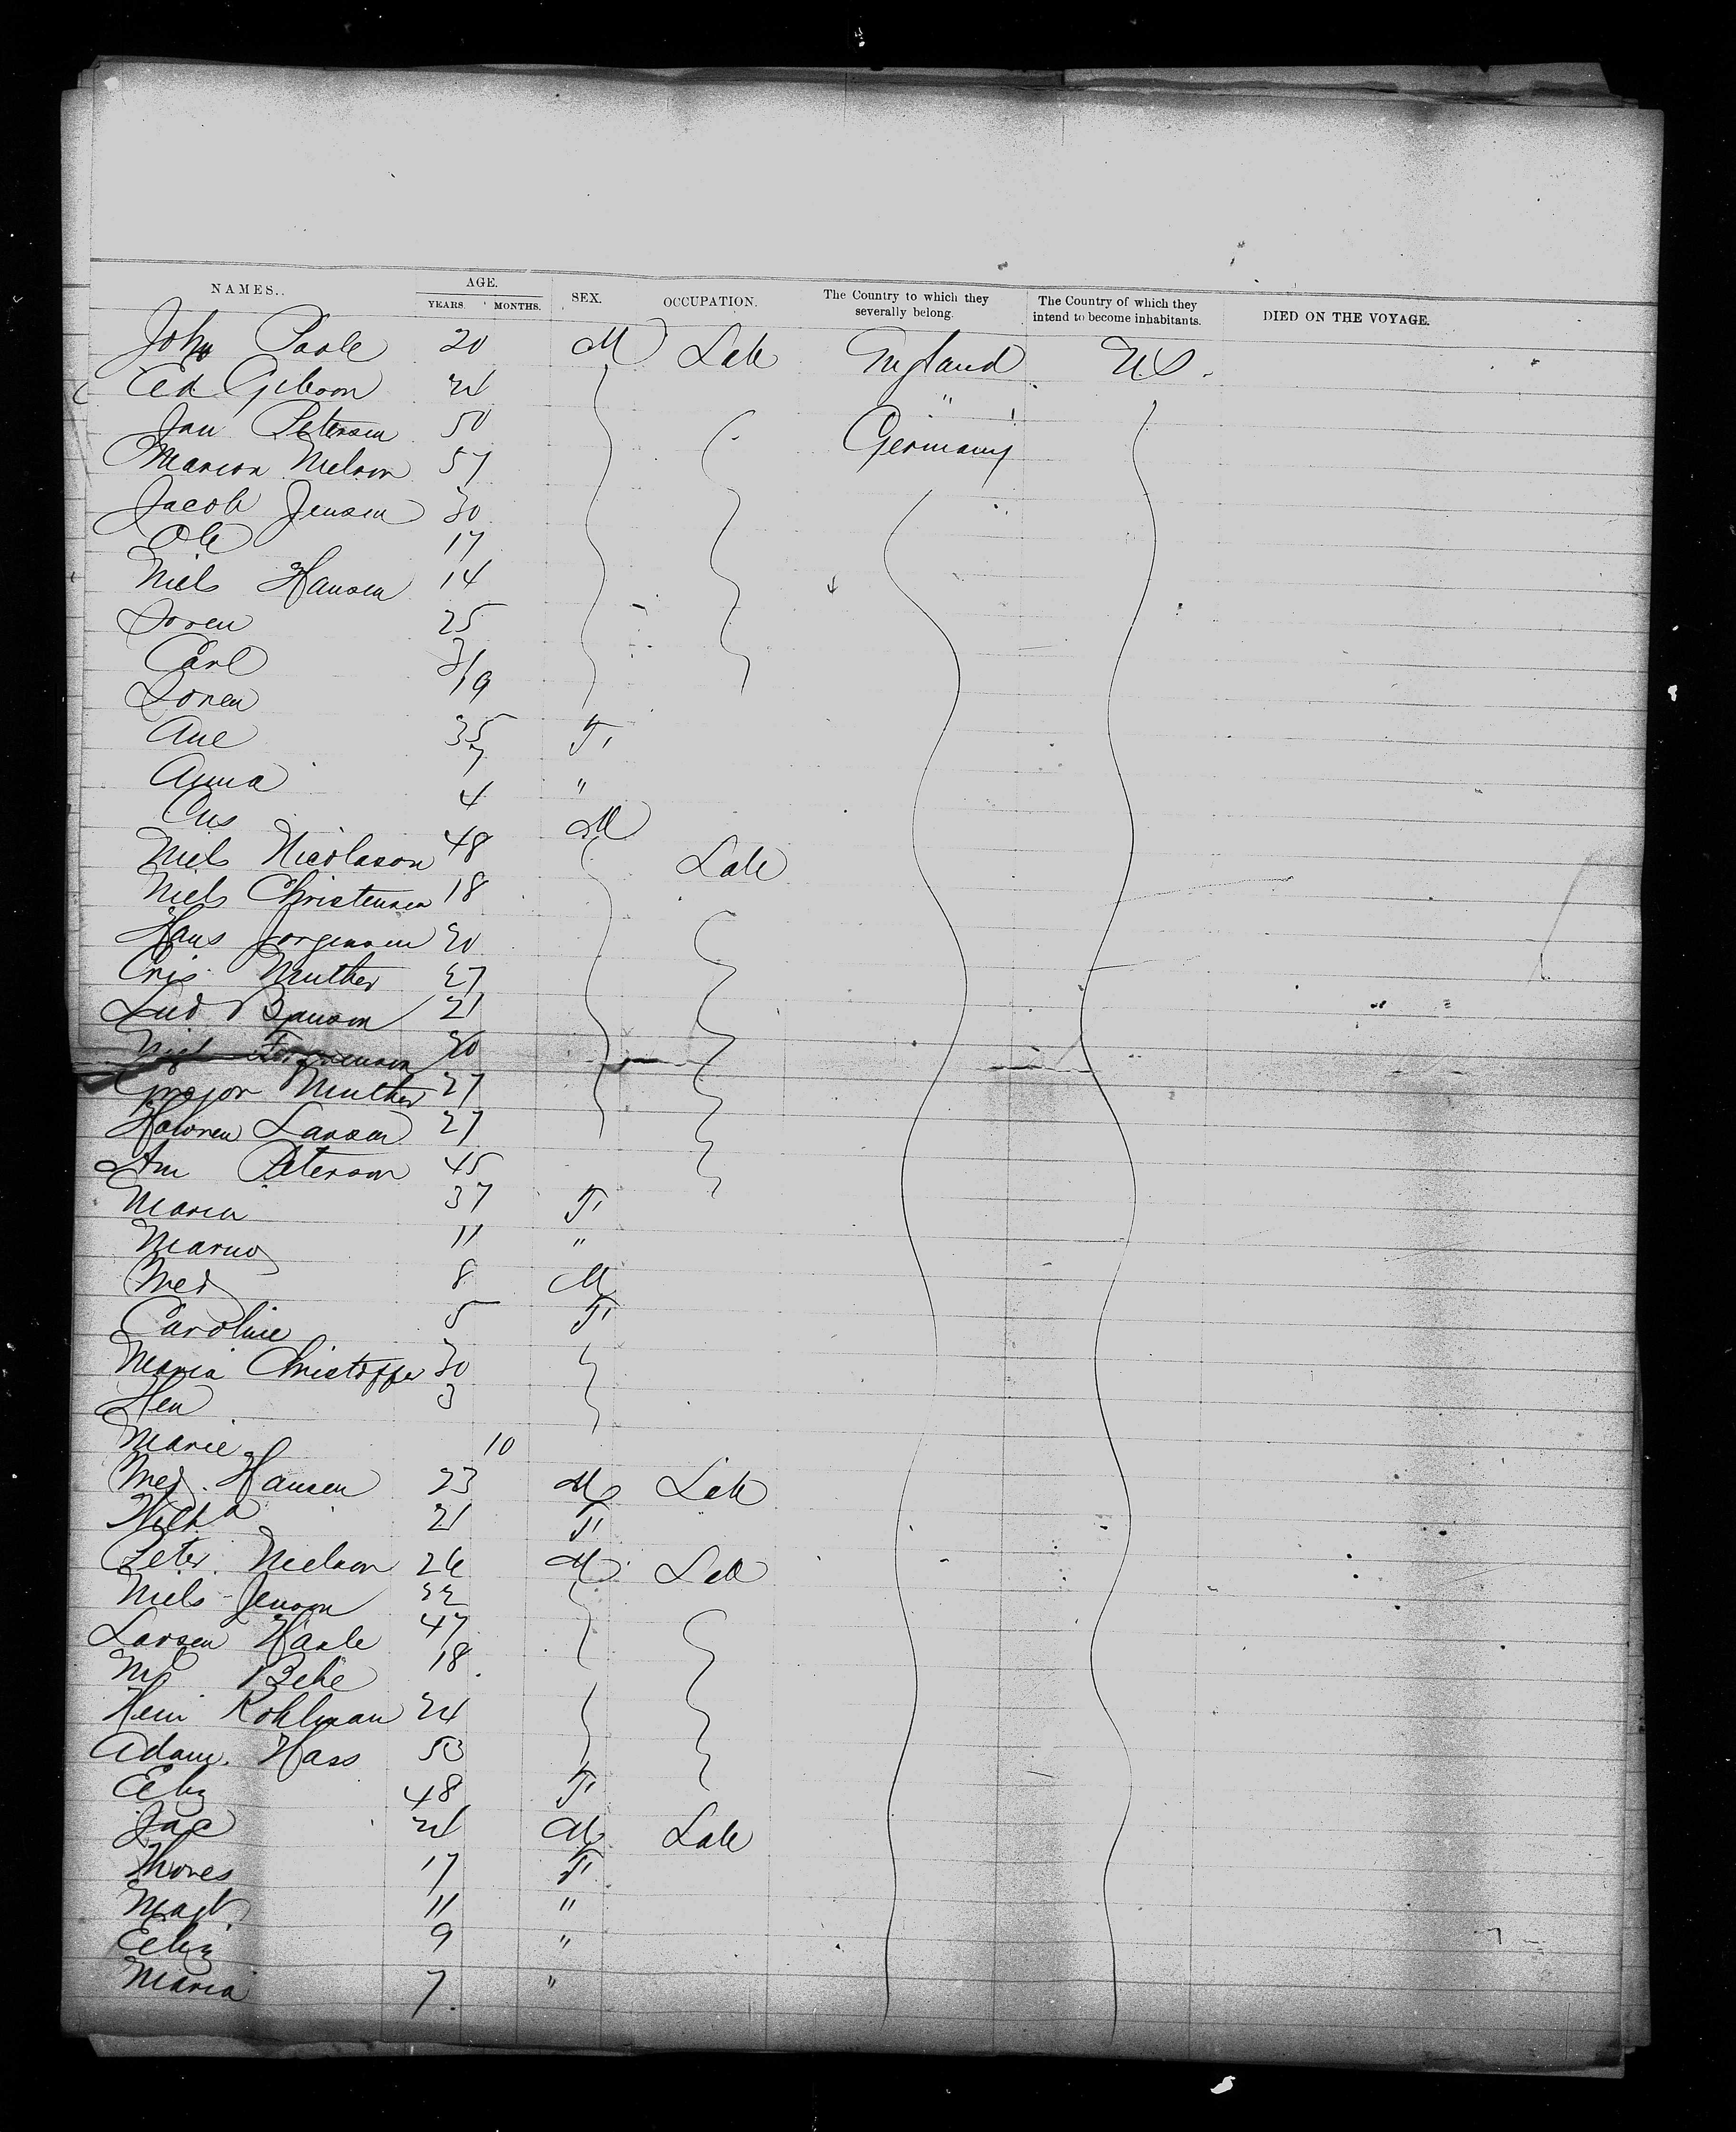 NAMES. AGE. SEX. OCCUPATION. The Country to which they severally belong. The Country of which they intend to become inhabitants. DIED ON THE VOYAGE.
YEARS. MONTHS.
John Poole 20 M Lab England U.S.
Ed Gibson 24 "
Jan Petersen 50 Germany
Marcon Nielson 57
Jacob Jensen 30
Ole 17
Niels Hansen 14
Soren 25
Carl 3/
Soren 19
Ane 35 F
Anna 7 "
Cris 4 M
Niels Nicolason 48 Lab
Niels Christensen 18
Hans Jorgensen 20
Cris Muther 27
Lud 21
20
Major Muther 27
Larsen 27
Peterson 45
Maria 37 F
11 "
8 M
Caroline 5 F
Maria Christoffer 30
Hen 3
Marie 10
Hansen 23 M Lab
21 F
Peter Nielson 26 M Lab
Niels Jenson 32
Larsen 47
18
Hein Kohlman 24
Adam Hass 53
Eliz 48 F
Jac 24 M Lab
Thores 17 F
Magt 11 "
Eliz 9 "
Maria 7 "